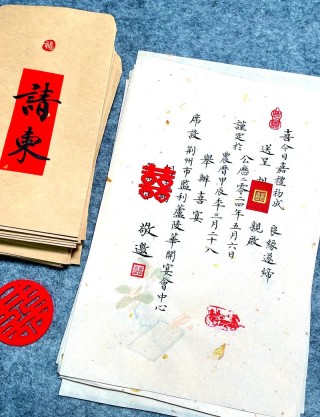 請柬
喜今日嘉禮初成 良緣遂締
送呈 親啟
謹定於 公曆二零二四年五月六日
農曆甲辰年三月二十八
舉辦喜宴
席設 荊州市監利蘆陵華開宴會中心
敬邀
囍
囍